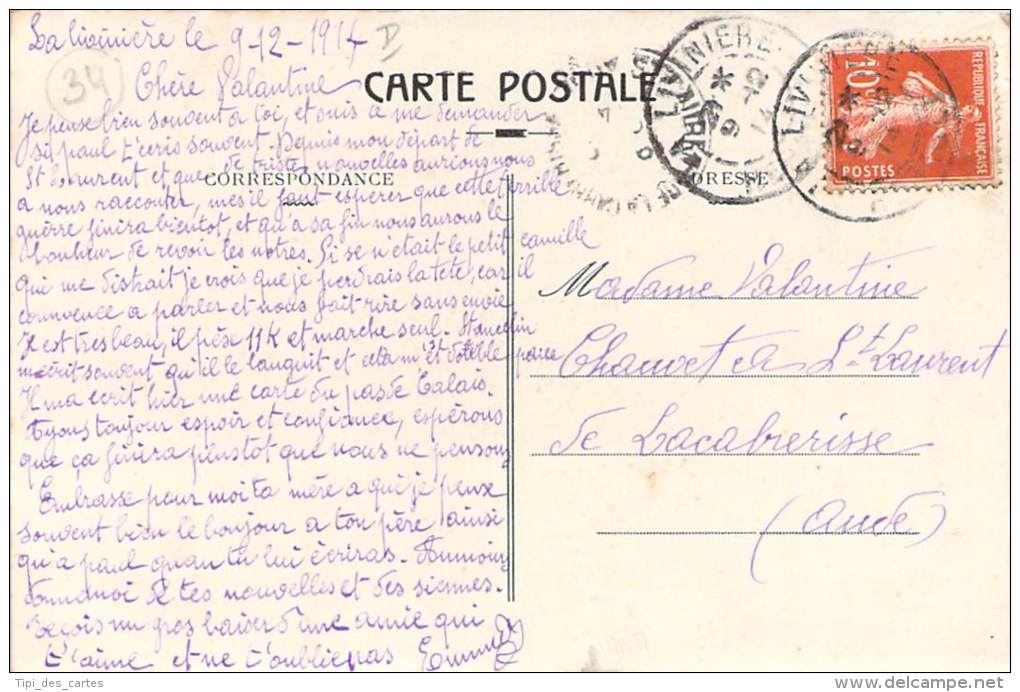 La livinière le 9-12-1914
D
34
Chère Valantine
Je pense bien souvent a toi, et suis a me demander
si paul t'ecris souvent. Depuis mon départ de
St Laurent et que de triste nouvelles aurions nous
a nous raconter, mes il faut esperer que cette terrible
guérre finira bientot, et qu'a sa fin nous aurons le
bonheur de revoir les notres. Si se n'était le petit camille
qui me distrait je crois que je perdrais la tete, car il
commence a parler et nous fait rire sans envie
Il est tres beau, il pèse 11K et marche seul.
m'écrit souvent qu'il le languit et cela m'est
Il ma ecrit hier une carte du pas de Calais.
Ayons toujour espoir et confiance, espérons
que ça finira plustot que nous ne pensons
Embrasse pour moi ta mère a qui je pense
souvent bien le bonjour a ton père ainsi
qu'a paul quan tu lui écriras.
donne moi de tes nouvelles et des siennes.
Recois un gros baiser d'une amie qui
t'aime et ne t'oublie pas Emma
CARTE POSTALE
CORRESPONDANCE
ADRESSE
LIVINIERE
LIVINIERE
REPUBLIQUE FRANÇAISE
10c
POSTES
Madame Valantine
Chauvet a St Laurent
de Lacabrerisse
(Aude)
Tipi_des_cartes